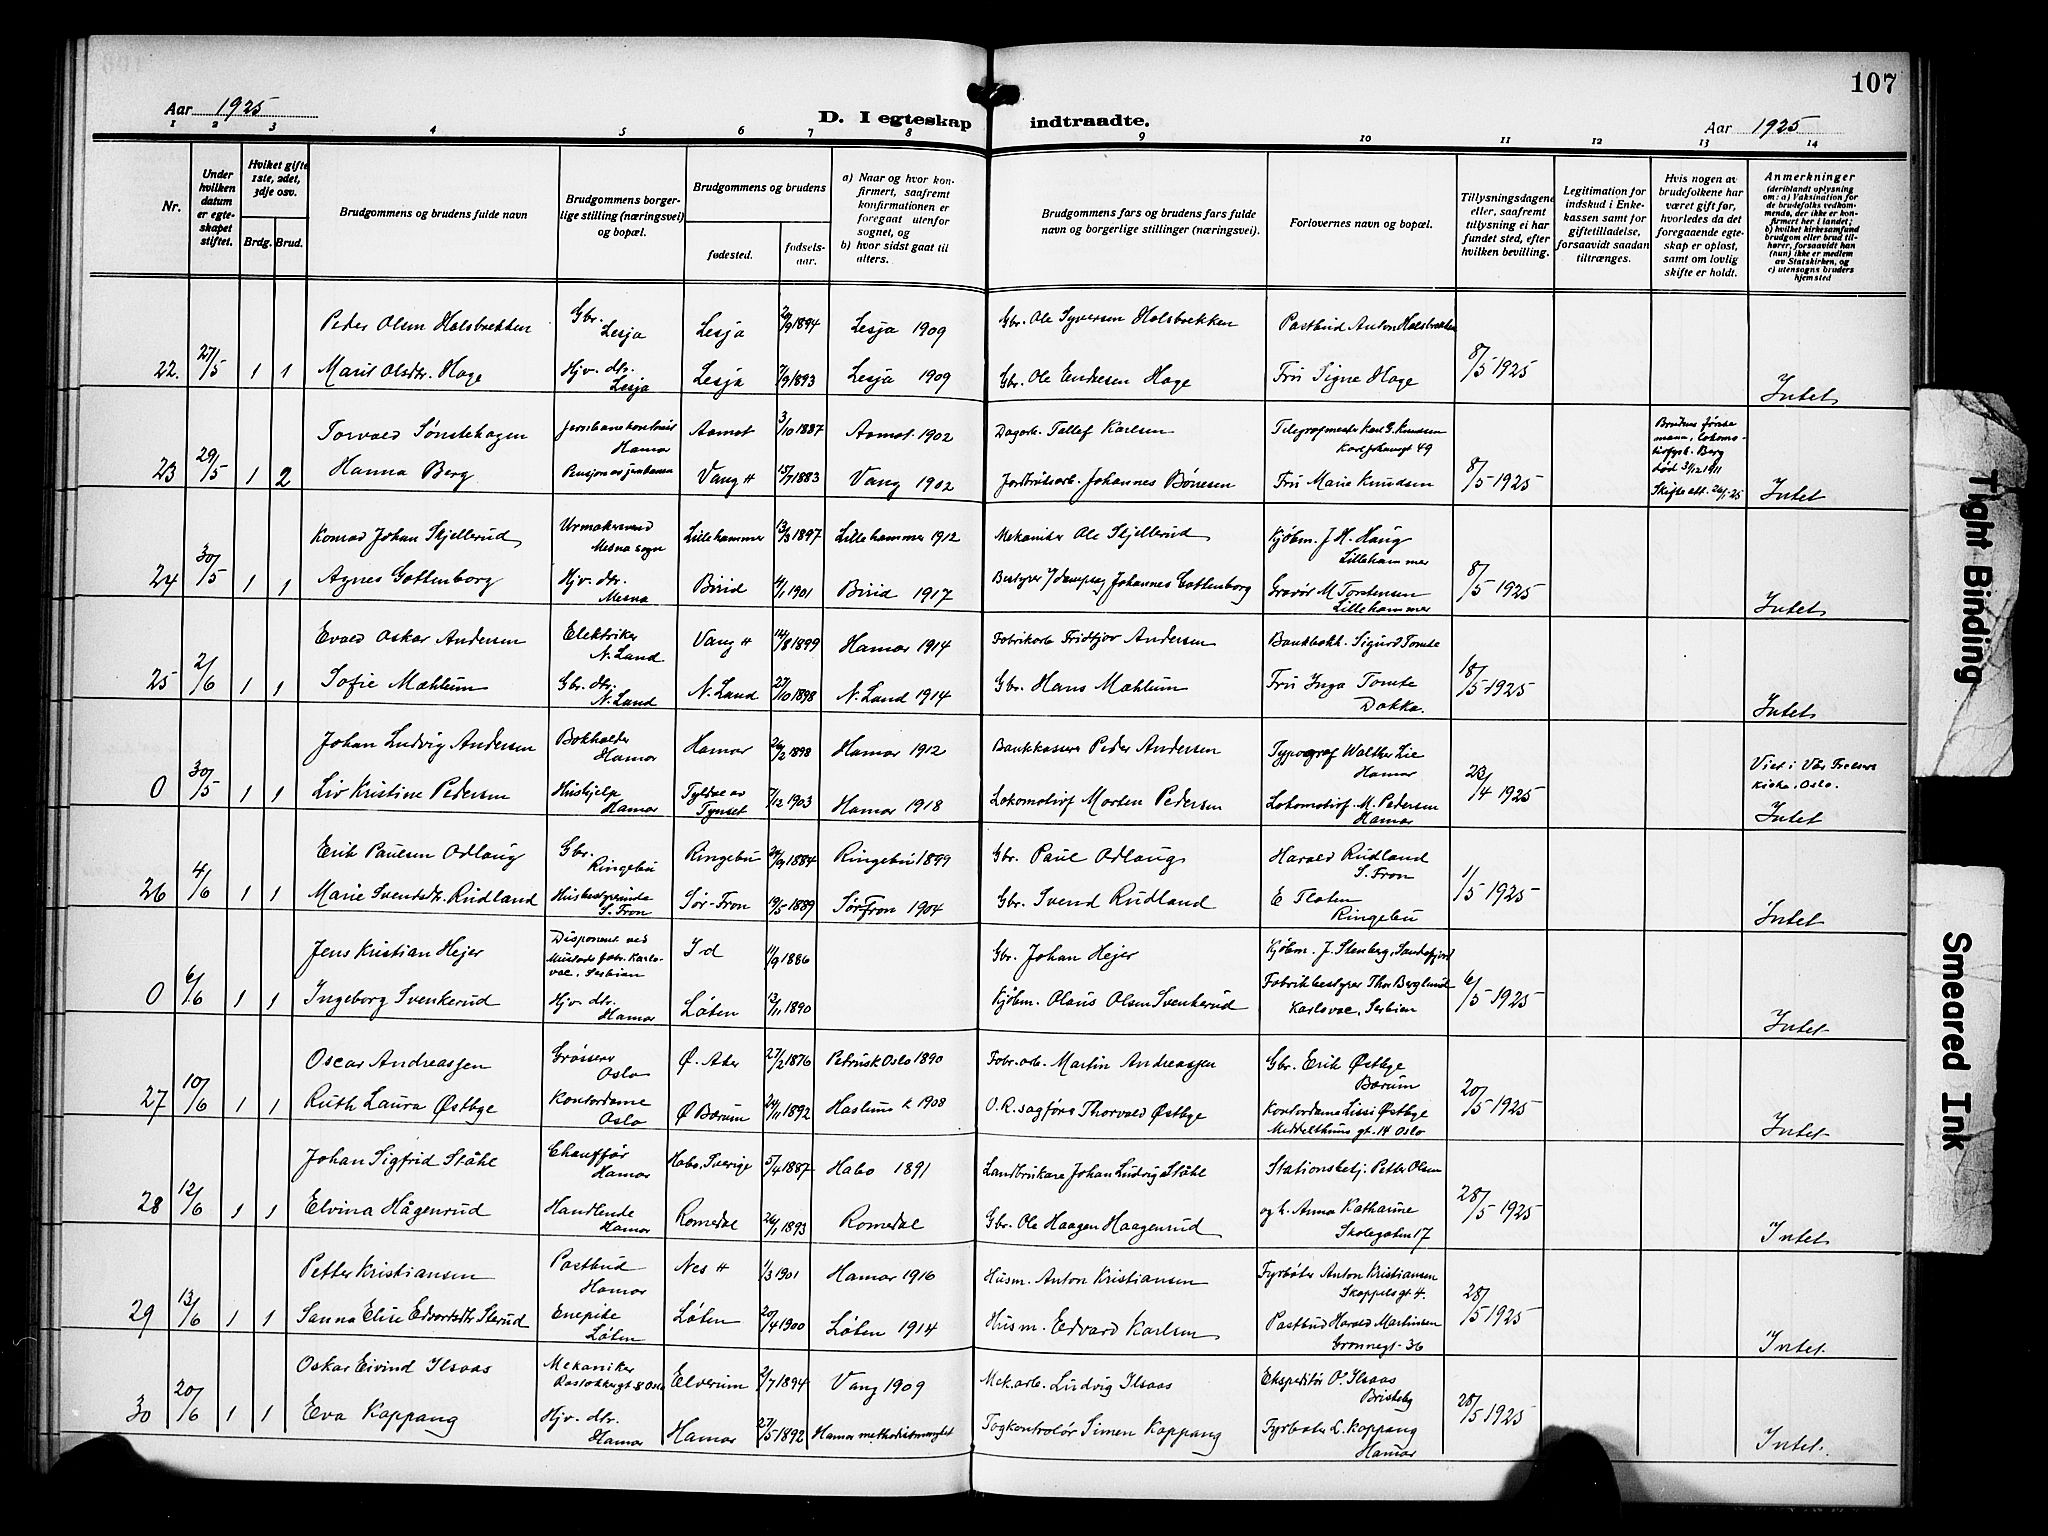 107
Aar 1925
D. I egteskap indtraadte.
Aar 1925
1 2 3 4 5 6 7 8 9 10 11 12 13 14
Nr.
Under hvilken datum er egteskapet stiftet.
Hviket gifte 1ste, 2det, 3dje osv.
Brdg. Brud.
Brudgommens og brudens fulde navn
Brudgommens borgerlige stilling (næringsvei) og bopæl.
Brudgommens og brudens
fødested.
fødselsaar.
a) Naar og hvor konfirmert, saafremt konfirmationen er foregaat utenfor sognet, og
b) hvor sidst gaat til alters.
Brudgommens fars og brudens fars fulde navn og borgerlige stillinger (næringsvei).
Forlovernes navn og bopæl.
Tillysningsdagene eller, saafremt tillysning ei har fundet sted, efter hvilken bevilling.
Legitimation for indskud i Enkekassen samt for giftetilladelse, forsaavidt saadan tiltrænges.
Hvis nogen av brudefolkene har været gift før, hvorledes da det foregaaende egteskap er opløst, samt om lovlig skifte er holdt.
Anmerkninger
(deriblandt oplysning om: a) Vaksination for de brudefolks vedkommende, der ikke er konfirmert her i landet; b) hvilket kirkesamfund brudgom eller brud tilhører, forsaavidt han (hun) ikke er medlem av Statskirken, og c) utensogns bruders hjemsted
Peder Olsen Holsbrekken Gbr. Lesja Lesja 1894 Lesja 1909 Gbr. Ole Syversen Holsbrekken Postbud Anton Holsbrekken
22. 27/5 1 1 Marit Olsdtr. Hage Hjv. dtr. Lesja Lesja 7/9 1893 Lesja 1909 Gbr. Ole Endresen Hage Fru Signe Hage 8/5 1925 Intet
Torvald Sønstehagen Hamar Aamot 3/10 1887 Aamot 1902 Dagarb. Tollef Karlsen Telegrafmester Karl G. Knudsen 49
23 29/5 1 2 Hanna Berg Vang H 15/7 1883 Vang 1902 Johannes Bønesen Fru Marie Knudsen 8/5 1925 Brudens første mann, Berg død 3/12 1911 Skifteatt. 26/1-25 Intet
Konrad Johan Skjellerud Urmakersvend Mesna sogn Lillehammer 13/3 1897 Lillehammer 1912 Mekaniker Ole Skjellerud Kjøbm. J. H. Haug Lillehammer
24 30/5 1 1 Agnes Gottenborg Hjv. dtr. Mesna Birid 4/1 1901 Birid 1917 Bestyrer Johannes Gottenborg Gravør M. Torstensen Lillehammer 8/5 1925 Intet
Evald Oskar Andersen Elektriker N. Land Vang H 14/8 1899 Hamar 1914 Fabrikarb. Fridtjov Andersen Bankbokh. Sigurd Tomte
25 2/6 1 1 Sofie Mæhlum Gbr. dtr. N. Land N. Land 27/10 1898 N. Land 1914 Gbr. Hans Mæhlum Fru Inga Tomte Dokka. 18/5 1925 Intet
Johan Ludvig Andersen Bokholder Hamar Hamar 26/2 1898 Hamar 1912 Bankkasserer Peder Andersen Typograf Walther Lie Hamar
0 30/5 1 1 Liv Kristine Pedersen Hushjelp Hamar Tyldal av Tynset 7/12 1903 Hamar 1918 Lokomotivf Morten Pedersen Lokomotivf. M. Pedersen Hamar 23/4 1925 Viet i Vår Frelsers Kirke, Oslo. Intet
Erik Paulsen Odlaug Gbr. Ringebu Ringebu 24/9 1884 Ringebu 1899 Gbr. Paul Odlaug Harald Rudland S. Fron
26 4/6 1 1 Marie Svendsdtr. Rudland Husbestyrerinde S. Fron Sør-Fron 19/5 1889 Sør Fron 1904 Gbr. Svend Rudland E Floten Ringebu 1/5 1925 Intet
Jens Kristian Hejer Disponent ved Mustads fabr. Karlovac, Serbien Id 11/9 1886 Gbr. Johan Hejer Kjøbm. J. Stenberg, Sandefjord
0 6/6 1 1 Ingeborg Svenkerud Hjv. dtr. Hamar Løten 13/11 1890 Kjøbm. Olaus Olsen Svenkerud Fabrikbestyrer Thor Berglund Karlovac, Serbien 6/5 1925 Intet
Oscar Andreassen Grosserer Oslo Ø. Aker 27/2 1876 Petrusk Oslo 1890 Fabr. arb. Martin Andreassen Gbr. Erik Østbye Bærum
27 10/6 1 1 Ruth Laura Østbye Kontordame Oslo Ø Bærum 24/11 1892 Haslum k 1908 O. R. sagfører Thorvald Østbye Kontordame Lissi Østbye Middelthuns gt. 14 Oslo 20/5 1925 Intet
Johan Sigfrid Ståhl Chauffør Hamar Habo, Sverige 5/4 1887 Habo 1891 Landbrukare Johan Ludvig Ståhl Stationsbetj. Petter Olsen
28 12/6 1 1 Elvina Hågenrud Handlende Hamar Romedal 26/1 1893 Romedal Gbr. Ole Haagen Haagenrud og h. Anna Katharine Skolegaten 17 28/5 1925 Intet
Petter Kristiansen Postbud Hamar Nes H 1/3 1901 Hamar 1916 Husm. Anton Kristiansen Fyrbøter Anton Kristiansen Skappels gt 4.
29 13/6 1 1 Sanna Elise Edvardsdtr. Sterud Enepike Løten Løten 20/4 1900 Løten 1914 Husm. Edvard Karlsen Postbud Harald Martinsen Grønnegt. 36 28/5 1925 Intet.
Oskar Eivind Ilsaas Mekaniker Elverum 2/7 1894 Vang 1909 Mek. arb. Ludvig Ilsaas Ekspeditør O. Ilsaas
30 20/6 1 1 Eva Koppang Hjv. dtr. Hamar Hamar 27/5 1892 Hamar Togkontrolør Simen Koppang Fyrbøter L. Koppang Hamar 28/5 1925 Intet.
Tight Binding
Smeared Ink